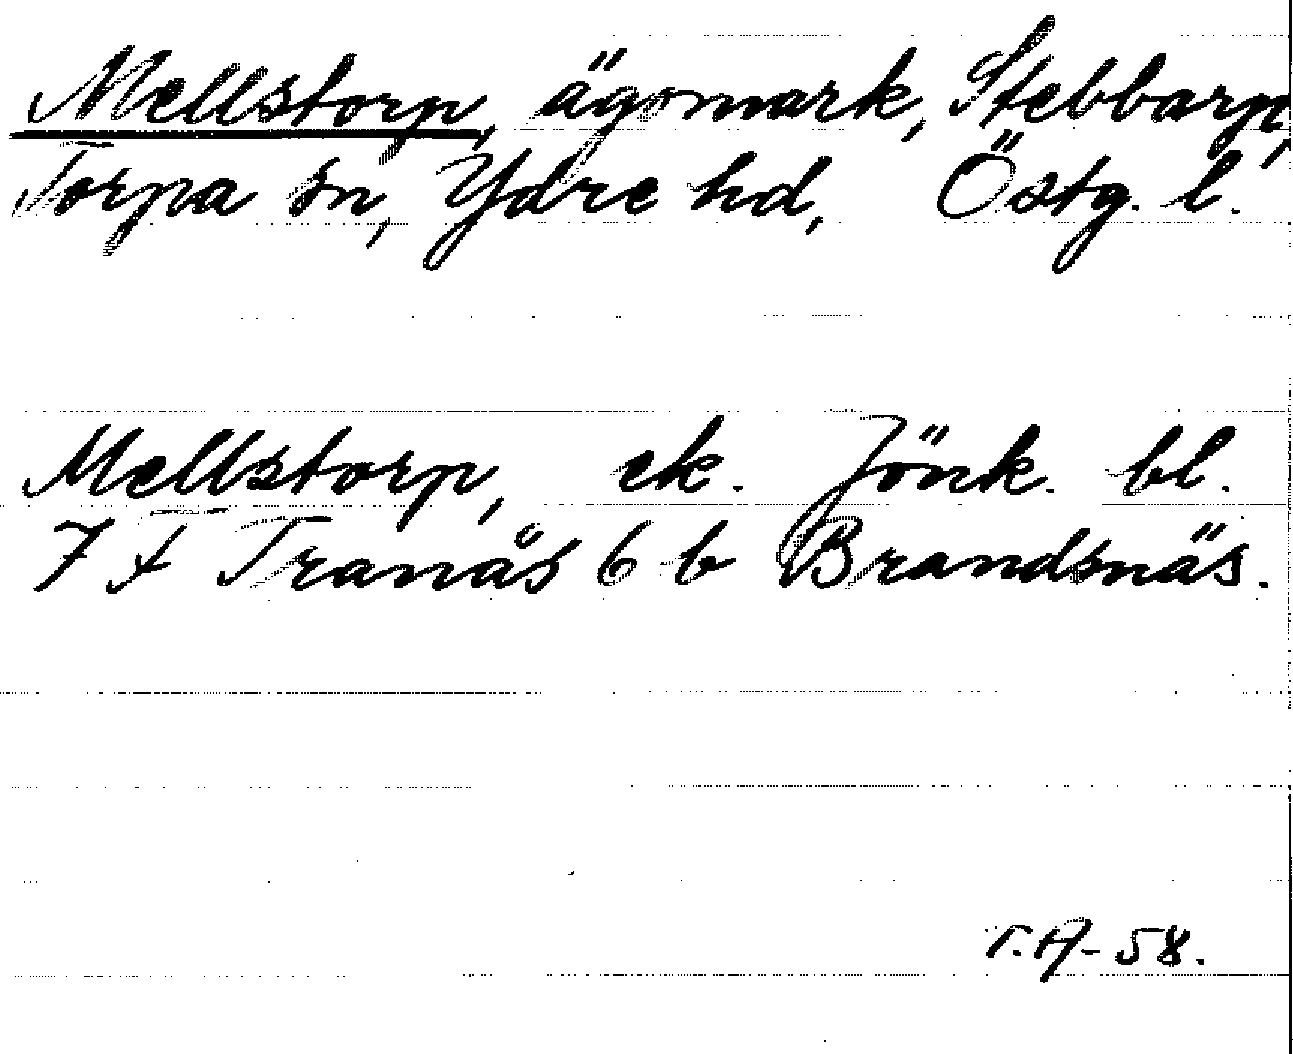 Mellstorp, ägomark, Stebbarp,
Torpa sn, Ydre hd, Östg. l.
Mellstorp, ek. Jönk. bl.
7 f Tranås 6 b Brandsnäs.
T.A-58.